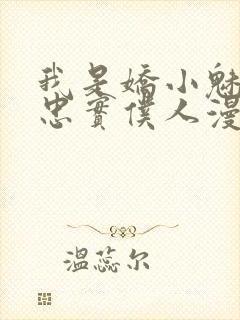 我是嬌小魅
忠實僕人漫
溫蕊尔